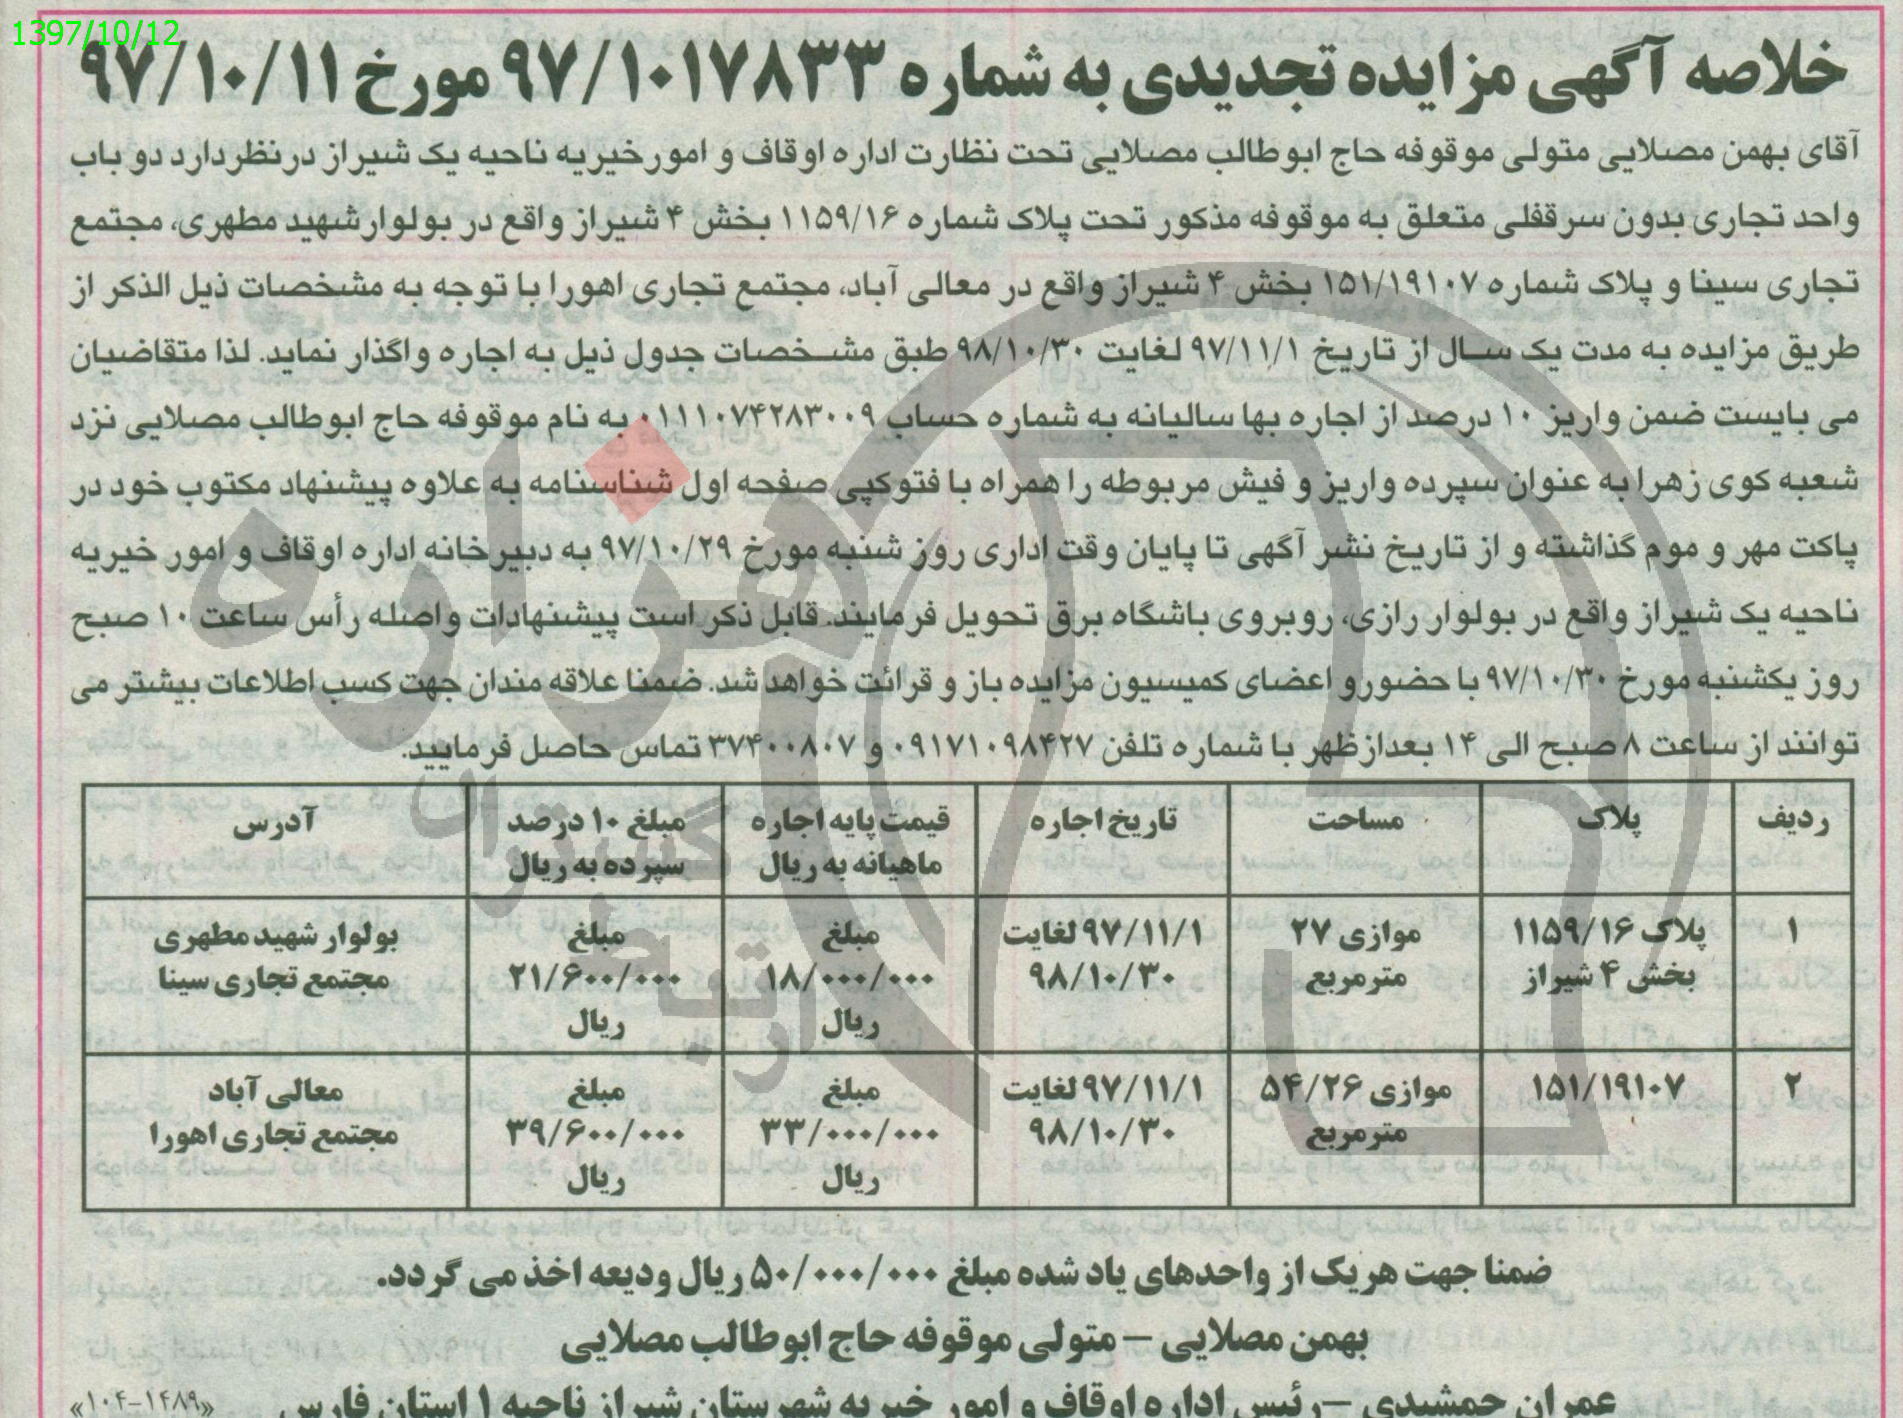 1397/10/12
خلاصه آگهی مزایده تجدیدی به شماره ۹۷/۱۰۱۷۸۳۳ مورخ ۹۷/۱۰/۱۱
آقای بهمن مصلایی متولی موقوفه حاج ابوطالب مصلایی تحت نظارت اداره اوقاف و امورخیریه ناحیه یک شیراز درنظردارد دو باب
واحد تجاری بدون سرقفلی متعلق به موقوفه مذکور تحت پلاک شماره ۱۱۵۹/۱۶ بخش ۴ شیراز واقع در بولوارشهید مطهری، مجتمع
تجاری سینا و پلاک شماره ۱۵۱/۱۹۱۰۷ بخش ۴ شیراز واقع در معالی آباد، مجتمع تجاری اهورا با توجه به مشخصات ذیل الذکر از
طریق مزایده به مدت یک سال از تاریخ ۹۷/۱۱/۱ لغایت ۹۸/۱۰/۳۰ طبق مشخصات جدول ذیل به اجاره واگذار نماید. لذا متقاضیان
می بایست ضمن واریز ۱۰ درصد از اجاره بها سالیانه به شماره حساب ۰۱۱۱۰۷۴۲۸۳۰۰۹ به نام موقوفه حاج ابوطالب مصلایی نزد
شعبه کوی زهرا به عنوان سپرده واریز و فیش مربوطه را همراه با فتوکپی صفحه اول شناسنامه به علاوه پیشنهاد مکتوب خود در
پاکت مهر و موم گذاشته و از تاریخ نشر آگهی تا پایان وقت اداری روز شنبه مورخ ۹۷/۱۰/۲۹ به دبیرخانه اداره اوقاف و امور خیریه
ناحیه یک شیراز واقع در بولوار رازی، روبروی باشگاه برق تحویل فرمایند. قابل ذکر است پیشنهادات واصله رأس ساعت ۱۰ صبح
روز یکشنبه مورخ ۹۷/۱۰/۳۰ با حضورو اعضای کمیسیون مزایده باز و قرائت خواهد شد. ضمنا علاقه مندان جهت کسب اطلاعات بیشتر می
توانند از ساعت ۸ صبح الی ۱۴ بعدازظهر با شماره تلفن ۰۹۱۷۱۰۹۸۴۲۷ و ۳۷۴۰۰۸۰۷ تماس حاصل فرمایید.
ردیف پلاک مساحت تاریخ اجاره قیمت پایه اجاره مبلغ ۱۰ درصد آدرس
ماهیانه به ریال سپرده به ریال
۱ پلاک ۱۱۵۹/۱۶ موازی ۲۷ ۹۷/۱۱/۱ لغایت مبلغ مبلغ بولوار شهید مطهری
بخش ۴ شیراز مترمربع ۹۸/۱۰/۳۰ ۱۸/۰۰۰/۰۰۰ ۲۱/۶۰۰/۰۰۰ مجتمع تجاری سینا
ریال ریال
۲ ۱۵۱/۱۹۱۰۷ موازی ۵۴/۲۶ ۹۷/۱۱/۱ لغایت مبلغ مبلغ معالی آباد
مترمربع ۹۸/۱۰/۳۰ ۳۳/۰۰۰/۰۰۰ ۳۹/۶۰۰/۰۰۰ مجتمع تجاری اهورا
ریال ریال
ضمنا جهت هریک از واحدهای یاد شده مبلغ ۵۰/۰۰۰/۰۰۰ ریال ودیعه اخذ می گردد.
بهمن مصلایی – متولی موقوفه حاج ابوطالب مصلایی
عمران جمشیدی –رئیس اداره اوقاف و امور خیریه شهرستان شیراز ناحیه ۱ استان فارس
«۱۰۴-۱۴۸۹»
هزاره